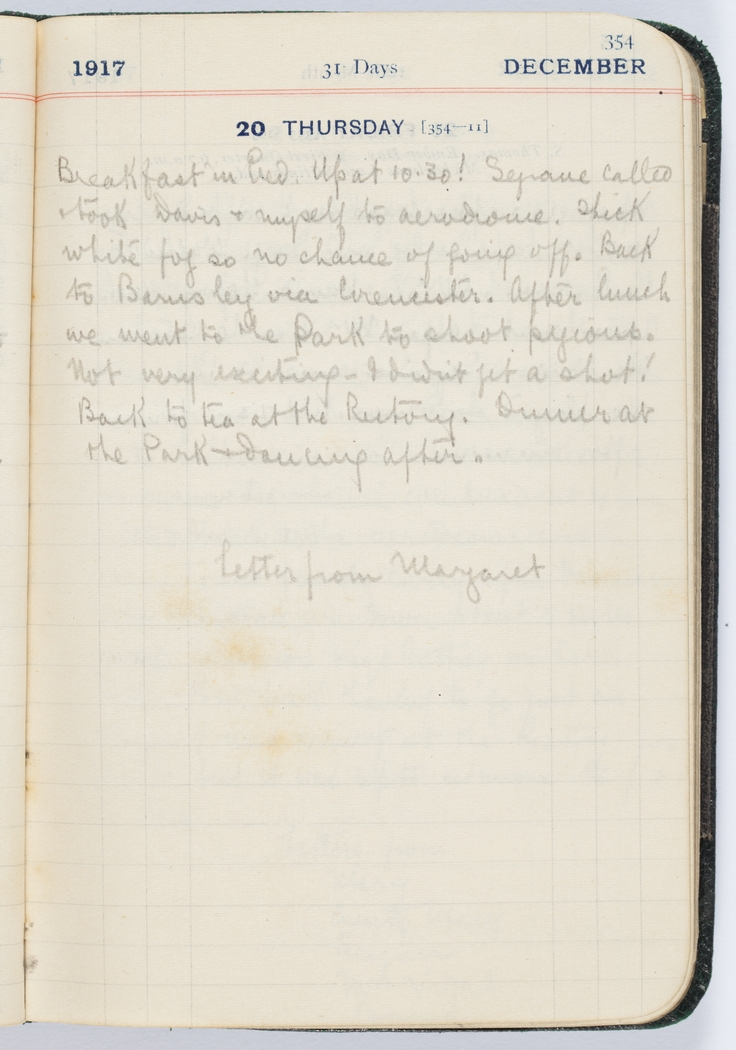 354
1917 31 Days DECEMBER
20 THURSDAY [354—11]
Breakfast in bed. Up at 10.30! called
& took Davis & myself to aerodrome. Thick
white fog so no chance of going off. Back
to Barnsley via Cirencester. After lunch
we went to the Park to shoot pigeons.
Not very exciting – I didn't get a shot!
Back to tea at the Rectory. Dinner at
the Park & dancing after.
Letter from Margaret